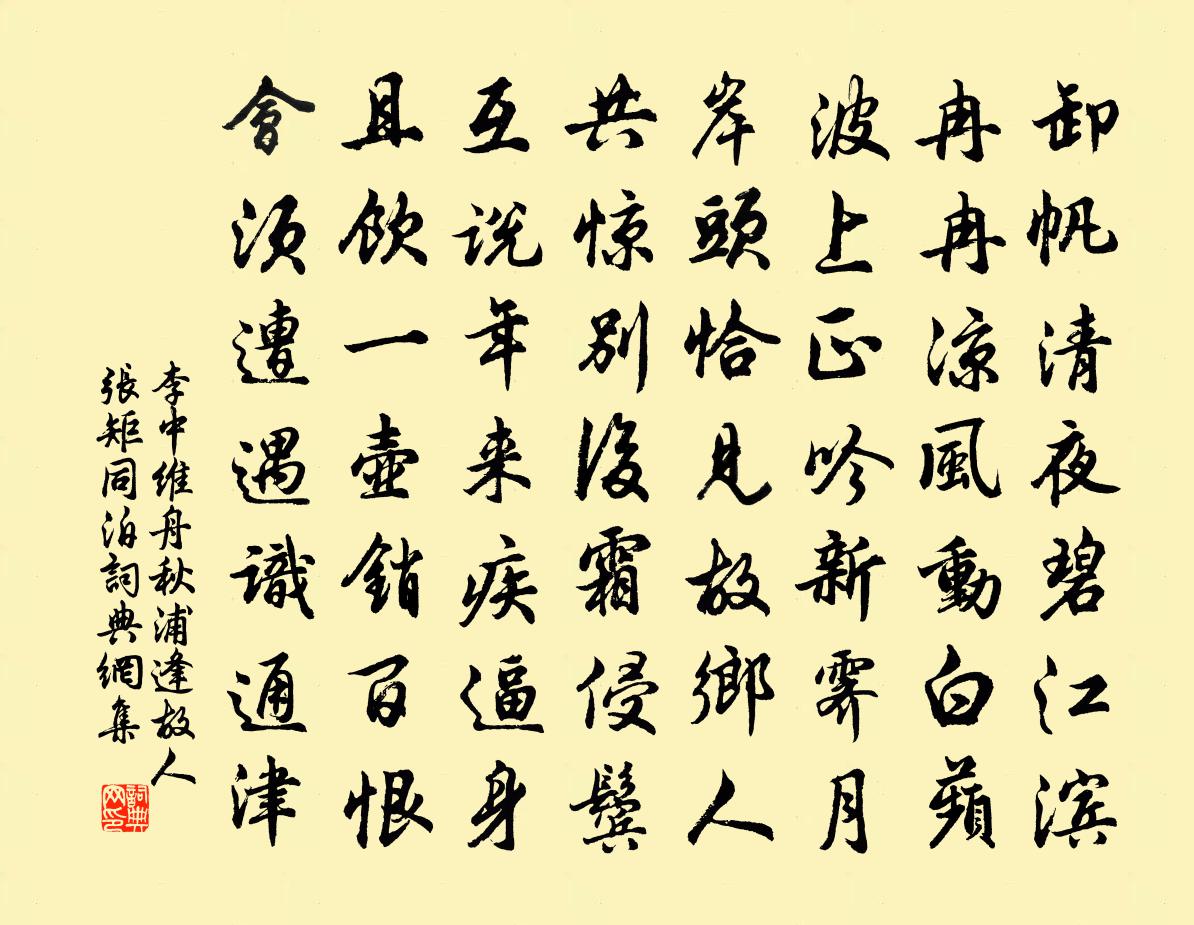 卸帆清夜碧江滨
冉冉凉風動白蘋
波上正吟新霽月
岸頭恰見故鄉人
共惊別後霜侵鬢
互说年来疾逼身
且飲一壺銷百恨
會須遭遇識通津
李中維舟秋浦逢故人
張矩同泊詞典網集
詞典网印